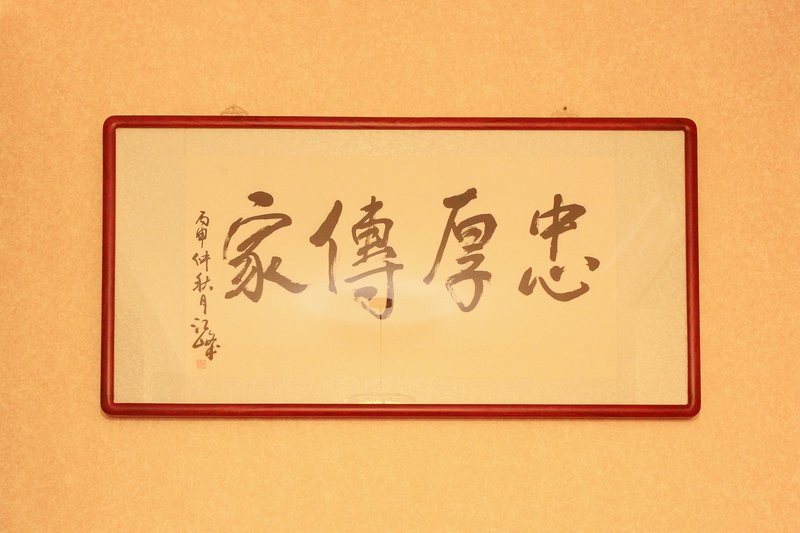 忠厚傳家
丙申仲秋月江峰